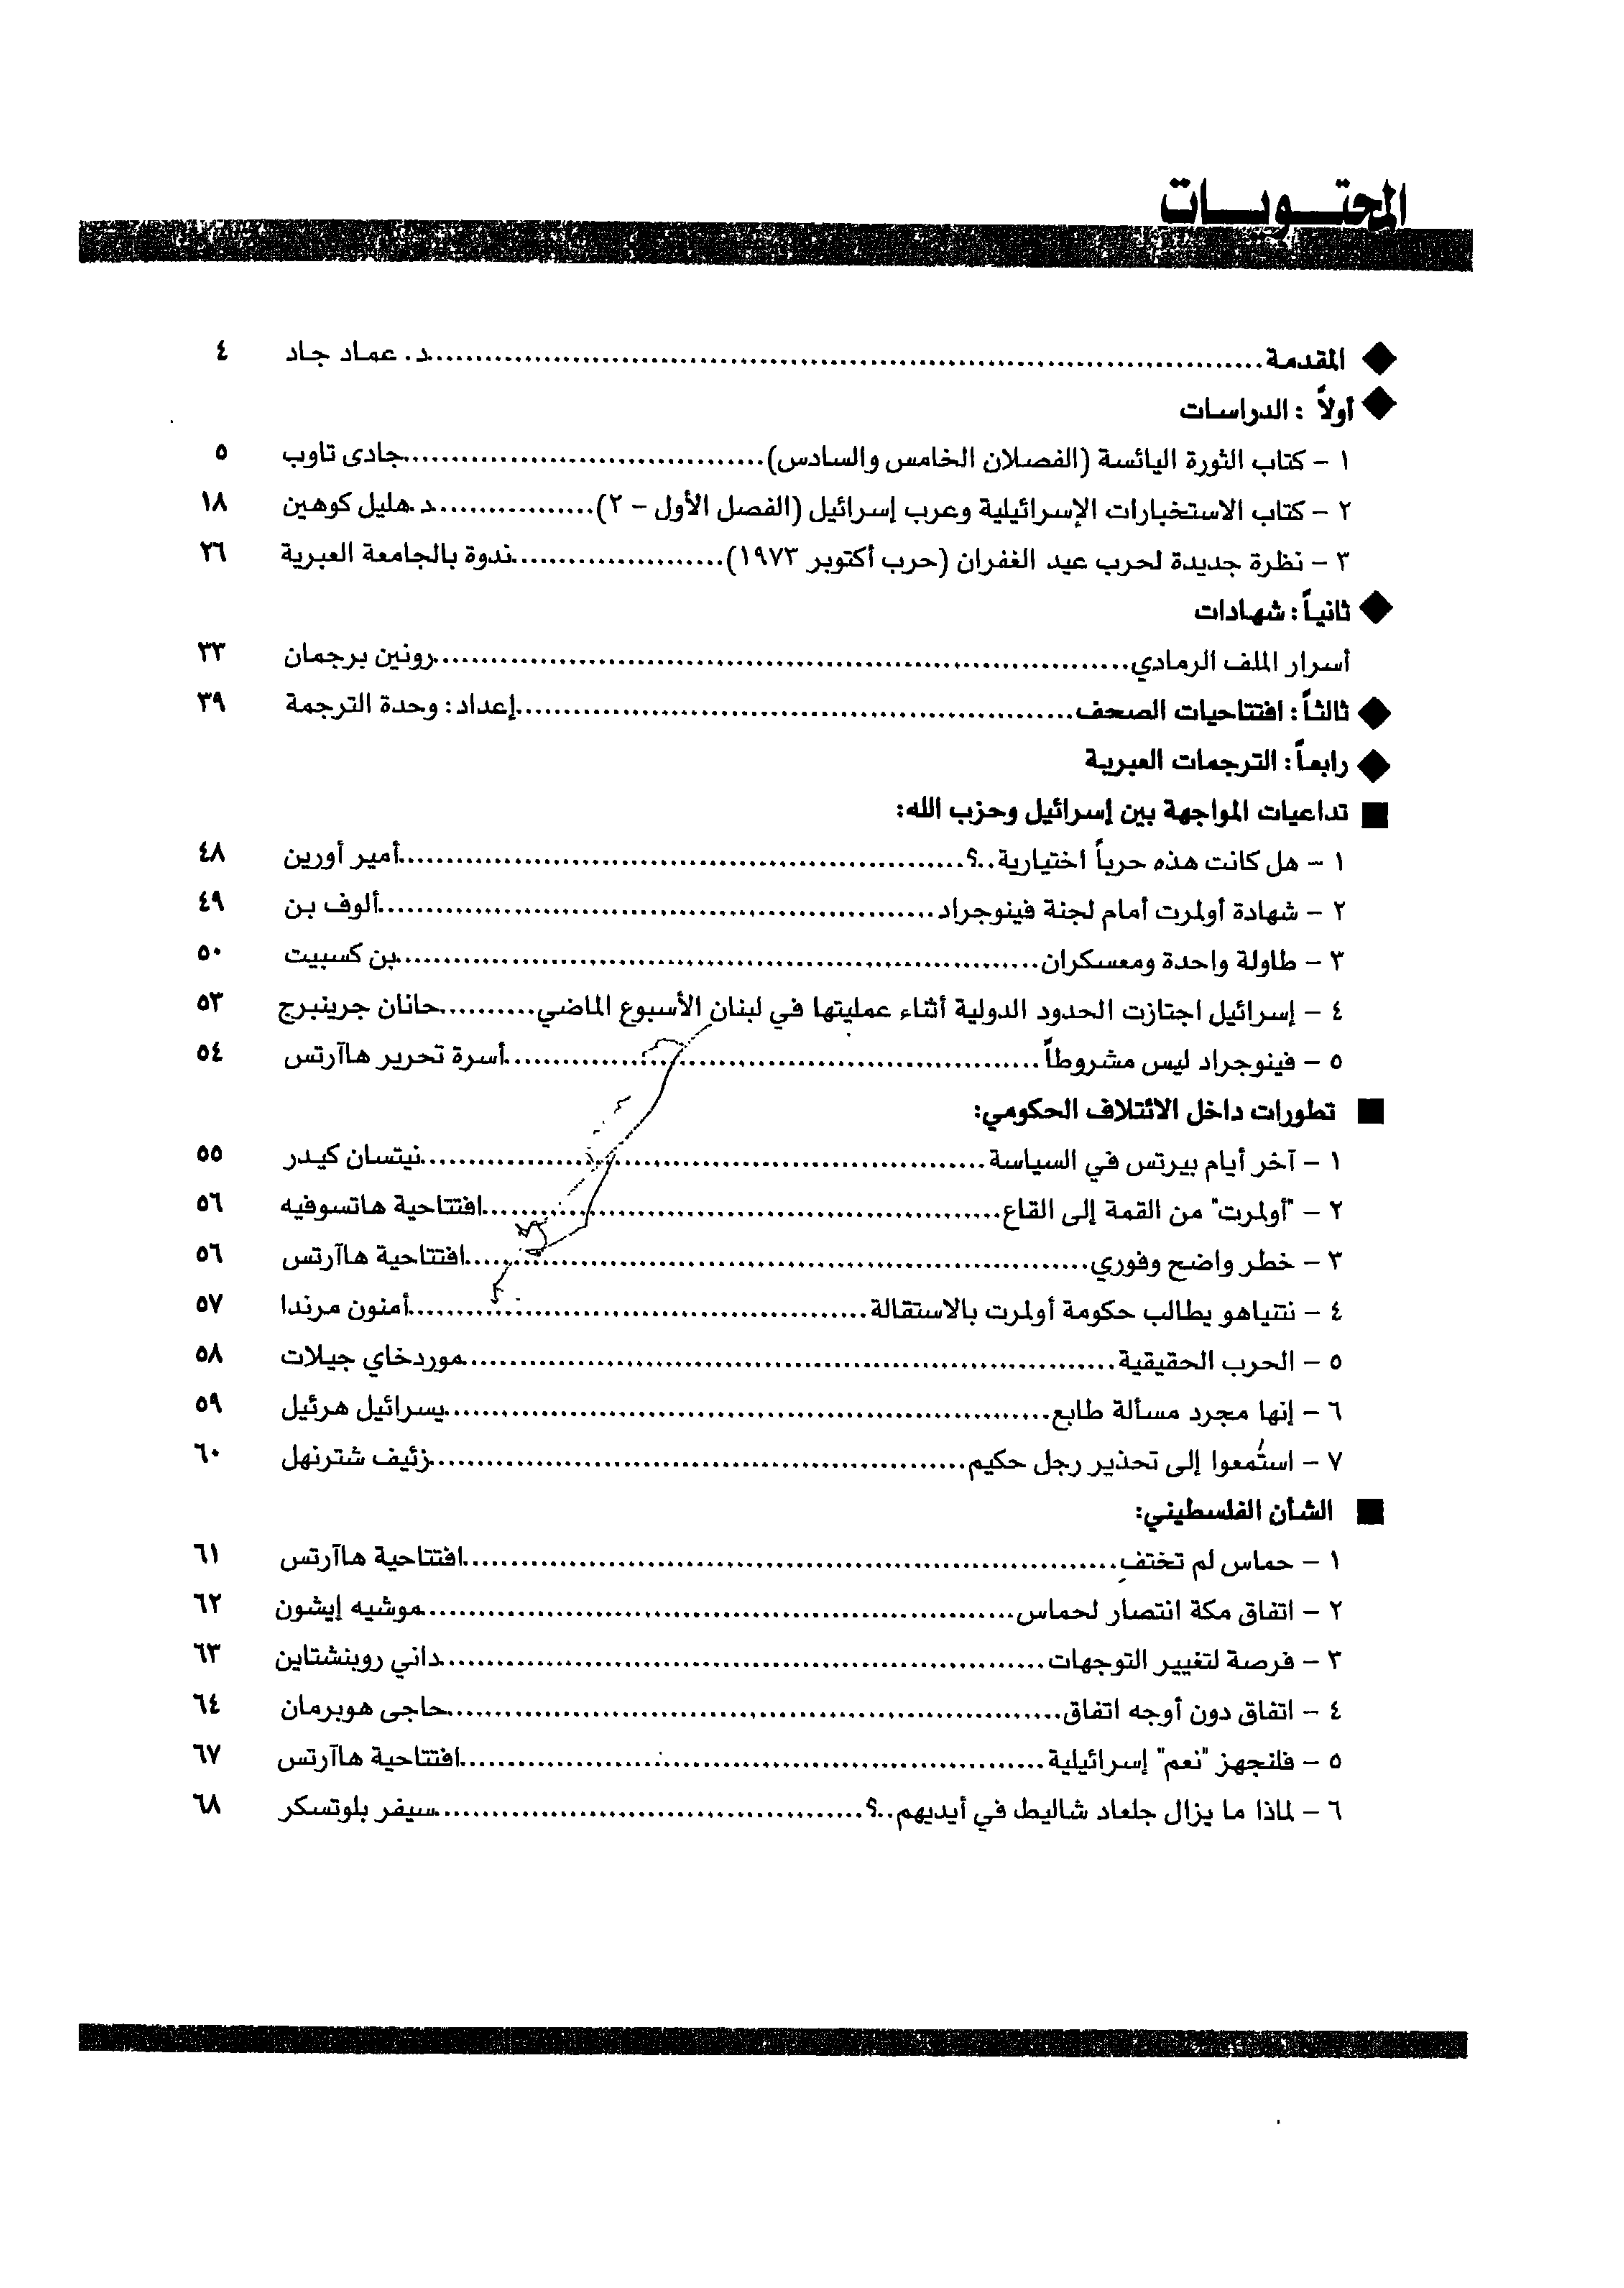 المحتويات
◆ المقدمة........................د. عماد جاد ٤
◆ أولاً : الدراسات
١ – كتاب الثورة اليائسة (الفصلان الخامس والسادس)........................جادى تاوب ٥
٢ – كتاب الاستخبارات الإسرائيلية وعرب إسرائيل (الفصل الأول – ٢)........................د.هليل كوهين ١٨
٣ – نظرة جديدة لحرب عيد الغفران (حرب أكتوبر ١٩٧٣)........................ندوة بالجامعة العبرية ٢٦
◆ ثانياً : شهادات
أسرار الملف الرمادي........................رونين برجمان ٣٣
◆ ثالثاً : افتتاحيات الصحف........................إعداد : وحدة الترجمة ٣٩
◆ رابعاً : الترجمات العبرية
■ تداعيات المواجهة بين إسرائيل وحزب الله:
١ – هل كانت هذه حرباً اختيارية..؟........................أمير أورين ٤٨
٢ – شهادة أولمرت أمام لجنة فينوجراد........................ألوف بن ٤٩
٣ – طاولة واحدة ومعسكران........................بن كسبيت ٥٠
٤ – إسرائيل اجتازت الحدود الدولية أثناء عمليتها في لبنان الأسبوع الماضي..........حانان جرينبرج ٥٣
٥ – فينوجراد ليس مشروطاً........................أسرة تحرير هاآرتس ٥٤
■ تطورات داخل الائتلاف الحكومي:
١ – آخر أيام بيرتس في السياسة........................نيتسان كيدر ٥٥
٢ – "أولمرت" من القمة إلى القاع........................افتتاحية هاتسوفيه ٥٦
٣ – خطر واضح وفوري........................افتتاحية هاآرتس ٥٦
٤ – نتنياهو يطالب حكومة أولمرت بالاستقالة........................أمنون مرندا ٥٧
٥ – الحرب الحقيقية........................موردخاي جيلات ٥٨
٦ – إنها مجرد مسألة طابع........................يسرائيل هرئيل ٥٩
٧ – استُمعوا إلى تحذير رجل حكيم........................زئيف شترنهل ٦٠
■ الشأن الفلسطيني:
١ – حماس لم تختفِ........................افتتاحية هاآرتس ٦١
٢ – اتفاق مكة انتصار لحماس........................موشيه إيشون ٦٢
٣ – فرصة لتغيير التوجهات........................داني روبنشتاين ٦٣
٤ – اتفاق دون أوجه اتفاق........................حاجى هوبرمان ٦٤
٥ – فلنجهز "نعم" إسرائيلية........................افتتاحية هاآرتس ٦٧
٦ – لماذا ما يزال جلعاد شاليط في أيديهم..؟........................سيفر بلوتسكر ٦٨